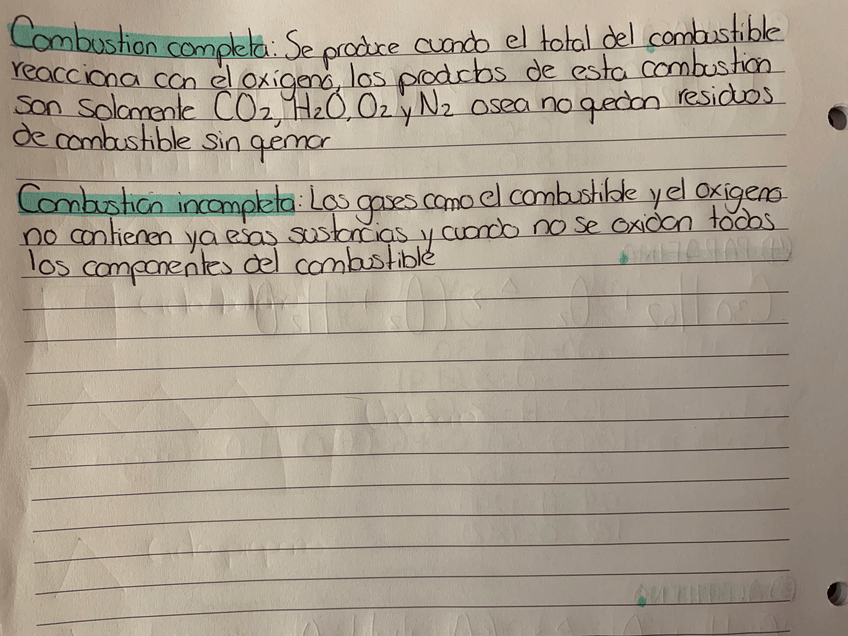 Combustion completa: Se produce cuando el total del combustible
reacciona con el oxigeno, los productos de esta combustion
son solamente CO2, H2O, O2 y N2 osea no quedan residuos
de combustible sin qemar
Combustion incompleta: Los gases como el combustible y el oxigeno
no contienen ya esas sustancias y cuando no se oxidan todos
los componentes del combustible